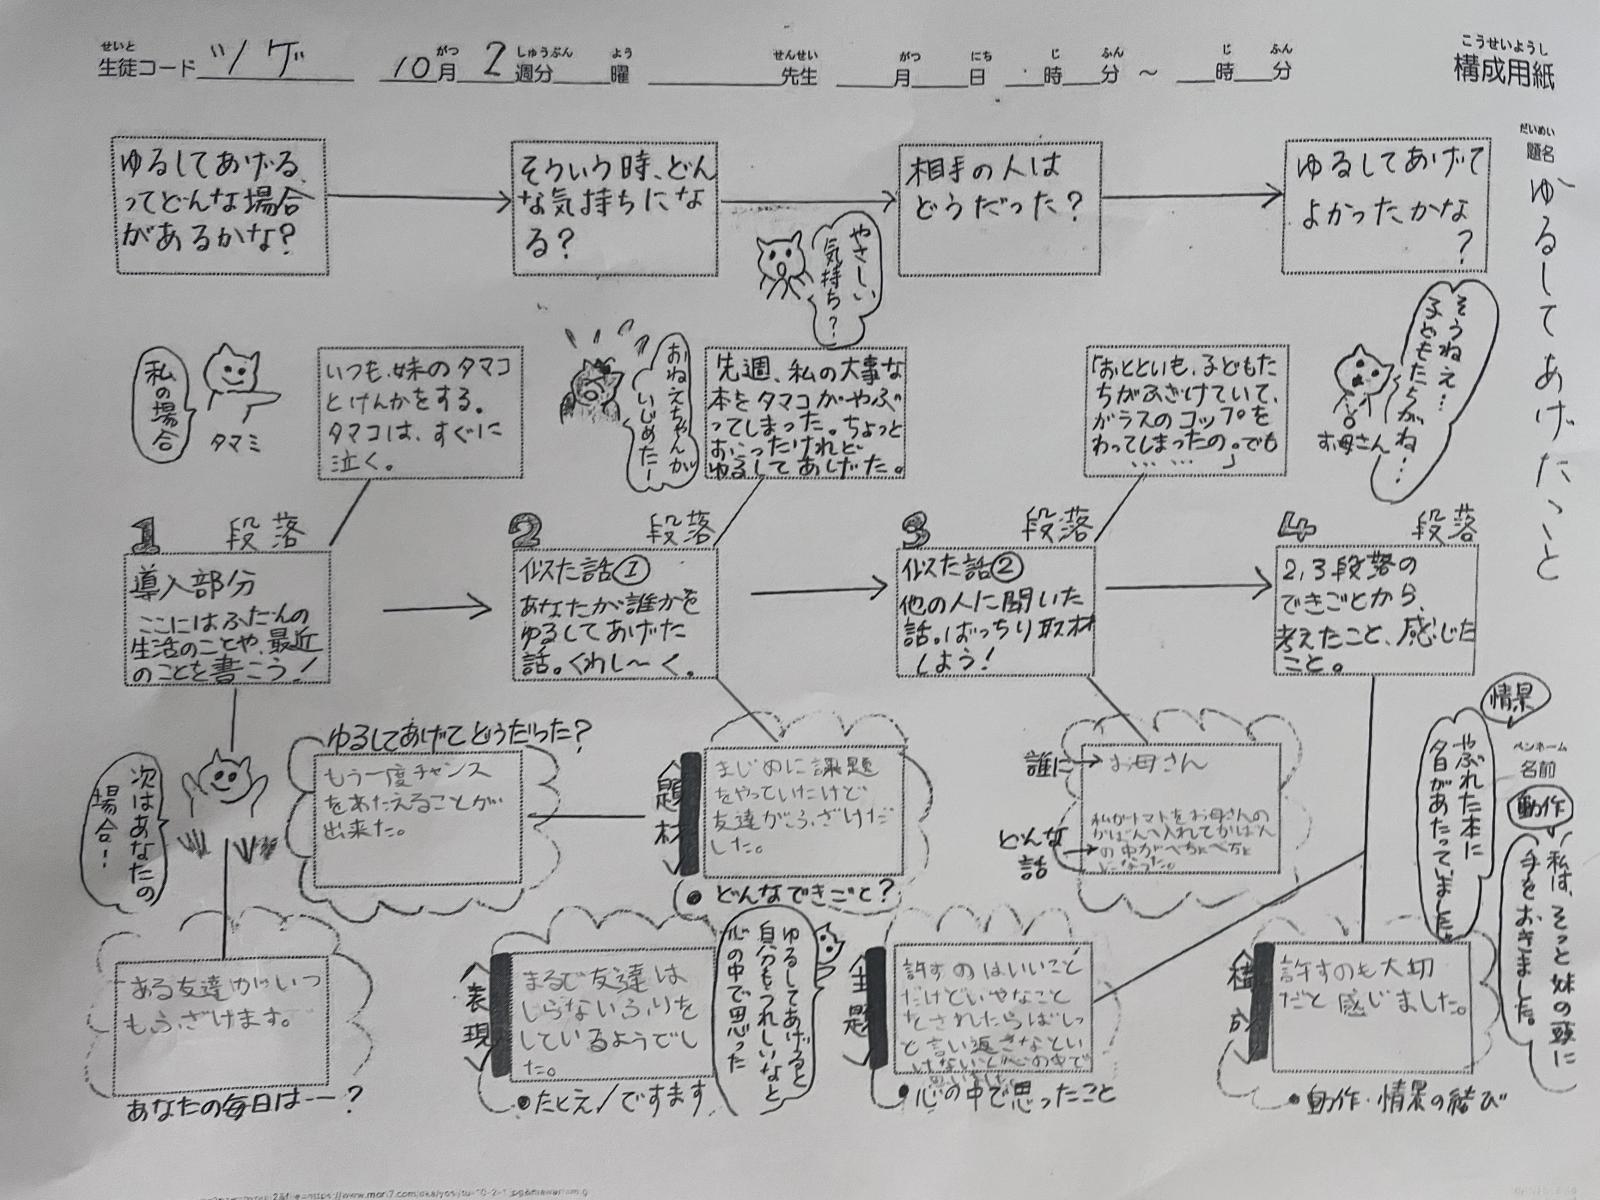 せいと
生徒コード ツゲ 10月 2週分 曜 先生 月 日 時 分 ～ 時 分
がつ しゅうぶん よう せんせい がつ にち じ ふん じ ふん
こうせいようし
構成用紙
だいめい
題名
ゆるしてあげたこと
ゆるしてあげる、
ってどんな場合
があるかな？
そういう時、どん
な気持ちにな
る？
相手の人は
どうだった？
ゆるしてあげて
よかったかな
？
やさしい
気持ち？
私の場合
タマミ
いつも、妹のタマコ
とけんかをする。
タマコは、すぐに
泣く。
おねえちゃんが
いじめたー
先週、私の大事な
本をタマコがやぶ
ってしまった。ちょっと
おこったけれど
ゆるしてあげた。
「おとといも、子どもた
ちがふざけていて、
ガラスのコップを
わってしまったの。でも
……」
お母さん
そうねえ…
子どもたちがね…
1 段落
導入部分
ここにはふだんの
生活のことや、最近
のことを書こう！
2 段落
似た話①
あなたが誰かを
ゆるしてあげた
話。くわし〜く。
3 段落
似た話②
他の人に聞いた
話。ばっちり取材
しよう！
4 段落
2,3段落の
できごとから、
考えたこと、感じた
こと。
次はあなたの
場合！
ゆるしてあげてどうだった？
もう一度チャンス
をあたえることが
出来た。
題材
まじめに課題
をやっていたけど
友達がふざけだ
した。
●どんなできごと？
誰に→
お母さん
どんな
話→
私がトマトをお母さんの
かばんへ入れてかばん
の中がべちょべちょ
になった。
情景
やぶれた本に
夕日があたっていました。
ペンネーム
名前
動作
私は、そっと妹の頭に
手をおきました。
ある友達がいつ
もふざけます。
あなたの毎日は--？
表現
まるで友達は
しらないふりを
しているようでし
た。
●たとえ/ですます
ゆるしてあげると
自分もうれしいなと
心の中で思った
主題
許すのはいいこと
だけどいやなこと
をされたらばしっ
と言い返さないとい
けないと心の中で
●心の中で思ったこと
構成
許すのも大切
だと感じました。
●動作・情景の結び